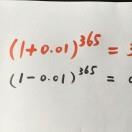 (1+0.01)^365 =
(1-0.01)^365 =